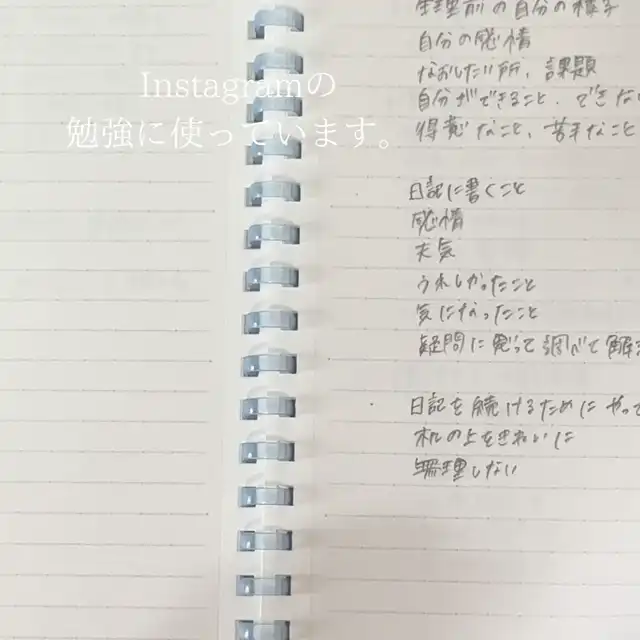 Instagramの
勉強に使っています。
生理前の自分の様子
自分の感情
なおしたい所、課題
自分ができること、できな
得意なこと、苦手なこと
日記に書くこと
感情
天気
うれしかったこと
気になったこと
疑問に思って調べて解
日記を続けるためにやって
机の上をきれいに
無理しない